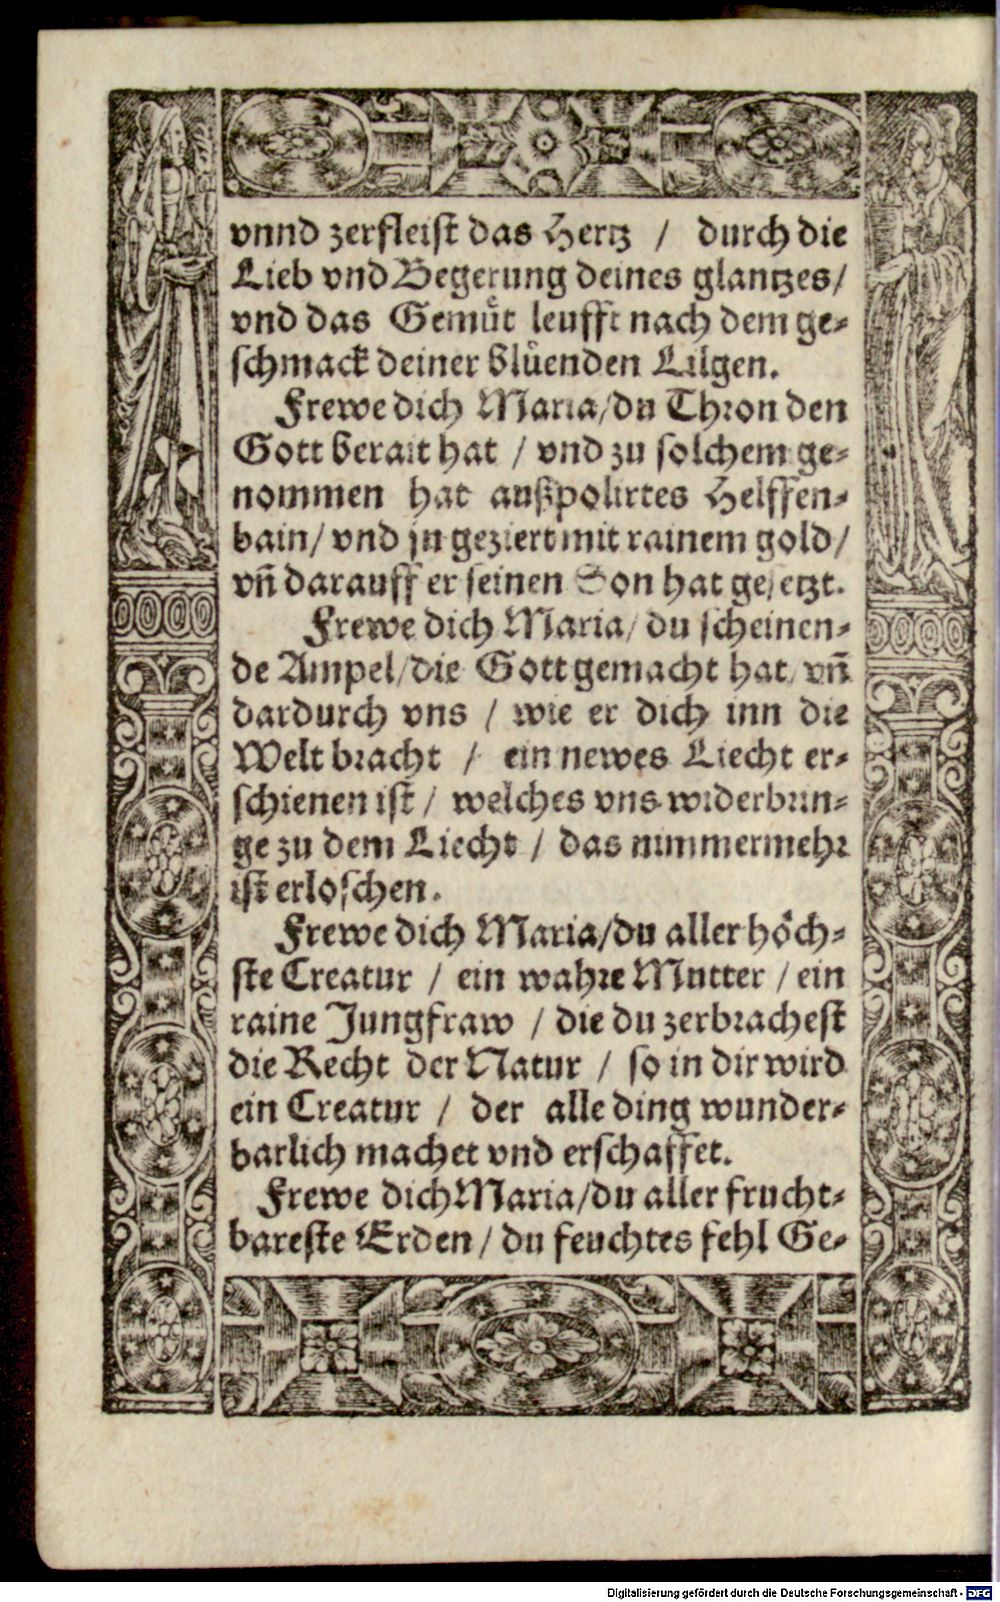 vnnd zerfleist das Hertz / durch die
Lieb vnd Begerung deines glantzes/
vnd das Gemuͤt leufft nach dem ge-
schmack deiner bluͤenden Lilgen.
Frewe dich Maria/du Thron den
Gott berait hat / vnd zu solchem ge-
nommen hat außpolirtes Helffen-
bain/ vnd jn geziert mit rainem gold/
vñ darauff er seinen Son hat gesetzt.
Frewe dich Maria/ du scheinen-
de Ampel/die Gott gemacht hat/ vñ
dardurch vns / wie er dich inn die
Welt bracht / ein newes Liecht er-
schienen ist / welches vns widerbrin-
ge zu dem Liecht / das nimmermehr
ist erloschen.
Frewe dich Maria/du aller hoͤch-
ste Creatur / ein wahre Mutter / ein
raine Jungfraw / die du zerbrachest
die Recht der Natur / so in dir wird
ein Creatur / der alle ding wunder-
barlich machet vnd erschaffet.
Frewe dich Maria/du aller frucht-
bareste Erden / du feuchtes fehl Ge-
Digitalisierung gefördert durch die Deutsche Forschungsgemeinschaft - DFG